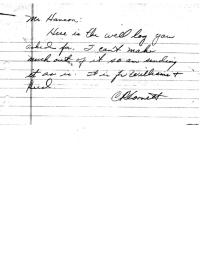 Mr Hanson:
Here is the well log you
asked for. I can't make
much out of it so am sending
it as is. It is for Williams +